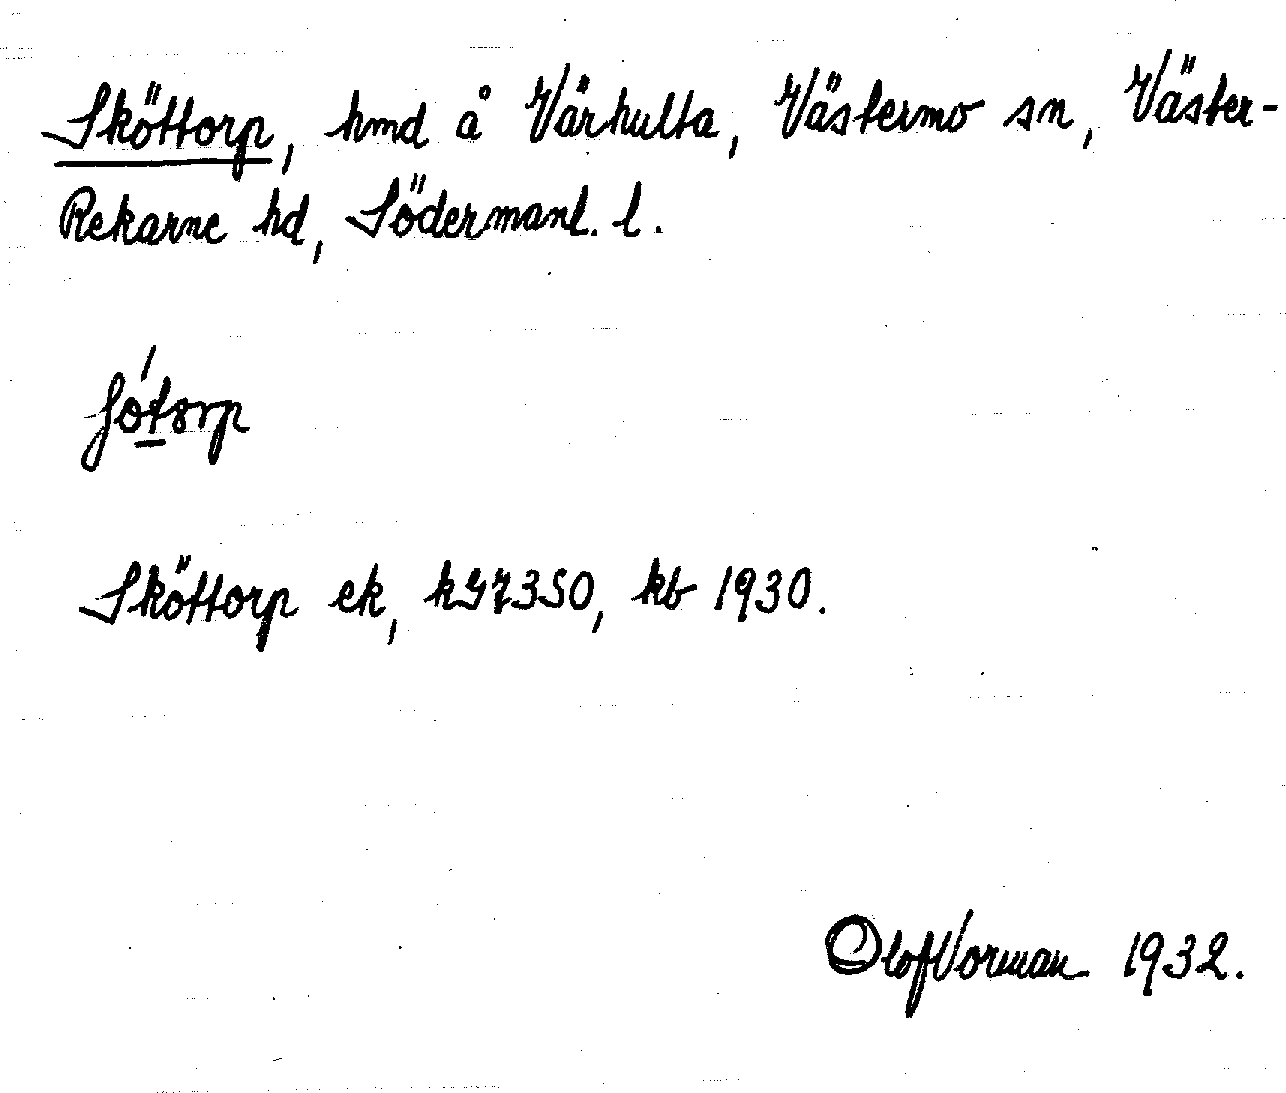 Sköttorp, hmd å Vårhulta, Västermo sn, Väster-
Rekarne hd, Södermanl. l.
Sköttorp ek, kG7350, kb 1930.
Olof Vorman 1932.